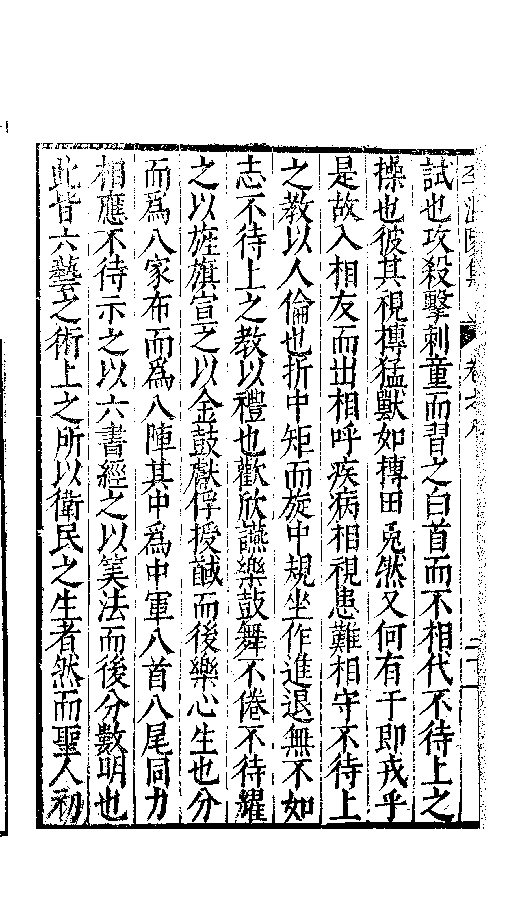 試也攻殺擊刺童而習之白首而不相代不待上之
操也彼其視摶猛獸如摶田兎然又何有于即戎乎
是故入相友而出相呼疾病相視患難相守不待上
之教以人倫也折中矩而旋中規坐作進退無不如
志不待上之教以禮也歡欣讌樂鼓舞不倦不待耀
之以旌旗宣之以金鼓獻俘授馘而後樂心生也分
而爲八家布而爲八陣其中爲中軍八首八尾同力
相應不待示之以六書經之以筭法而後分數明也
此昔六藝之術上之所以衛民之生者然而聖人初